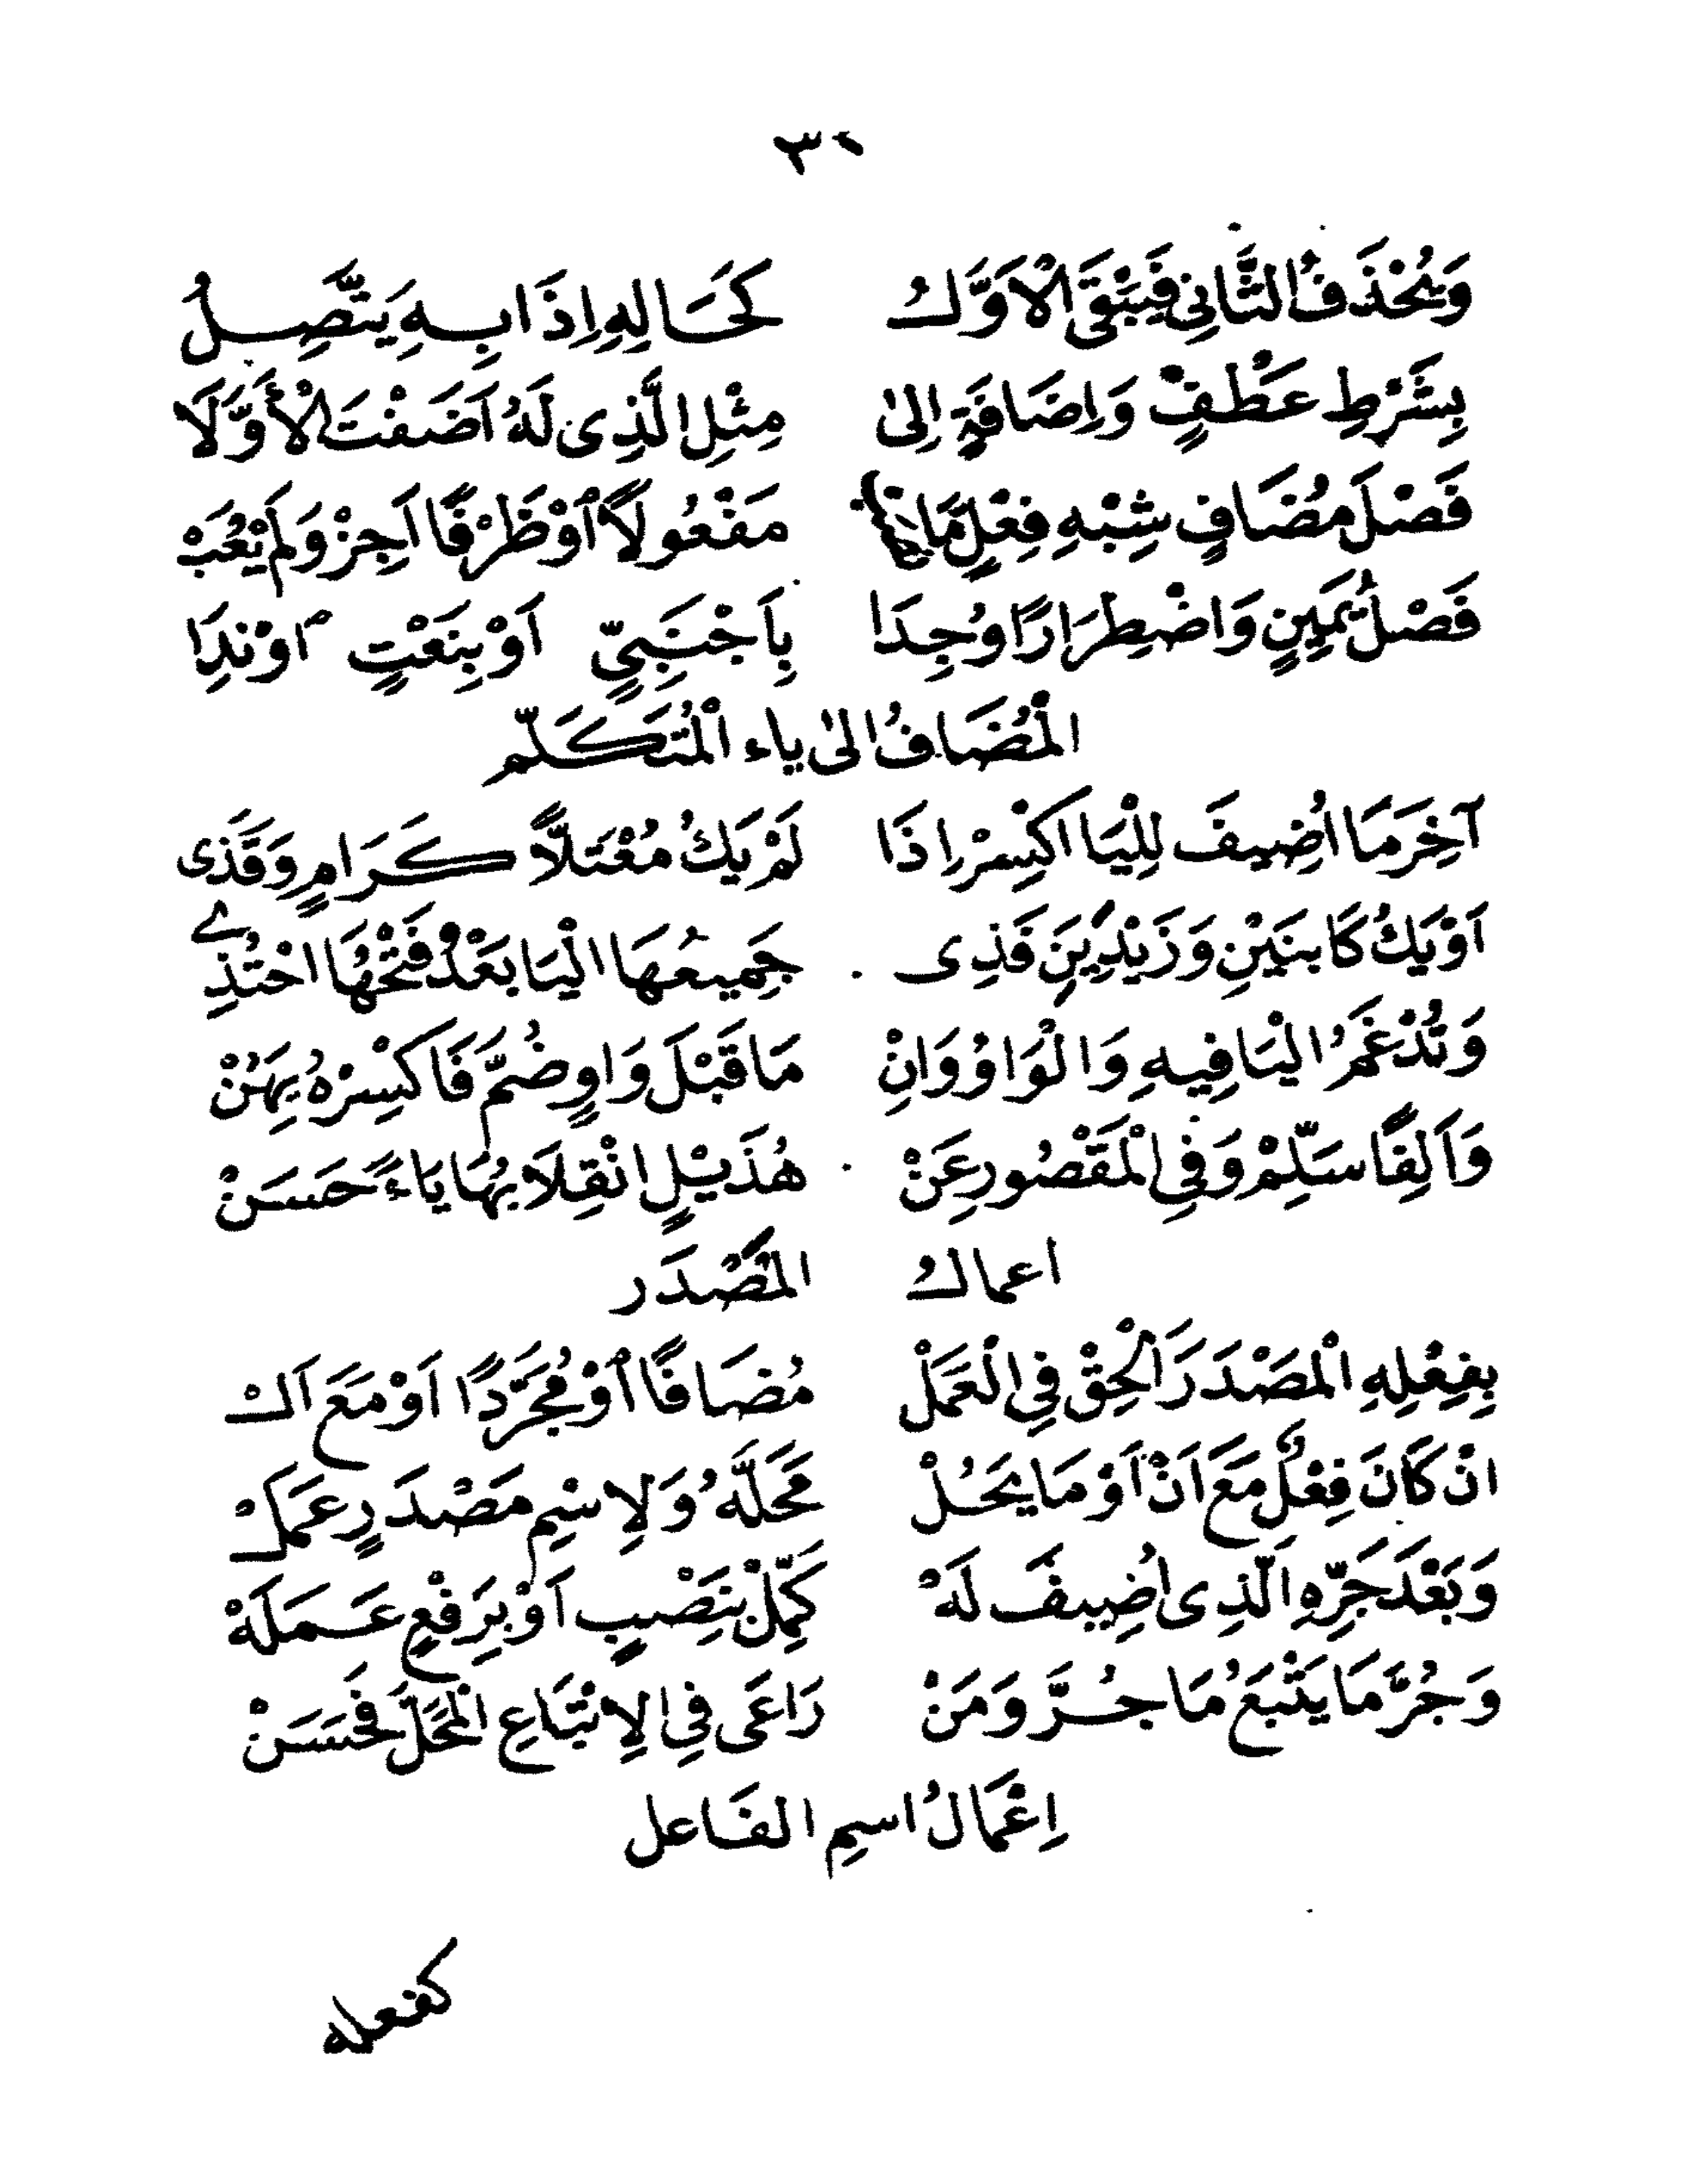 ٣٠
وَيُحْذَفُ الثَّانِي فَيَبْقَى الْاَوَّلُ كَحَالِهِ اِذَا بِهِ يَتَّصِلُ
بِشَرْطِ عَطْفٍ وَاِضَافَةٍ اِلىٰ مِثْلِ الَّذِى لَهُ اَضَفْتَ الْأَوَّلَا
فَصْلَ مُضَافٍ شِبْهِ فِعْلٍ مَا مَفْعُولًا اَوْ ظَرْفًا اَجِزْ وَلَمْ يُعَبْ
فَصْلُ يَمِينٍ وَاضْطِرَارًا وُجِدَا بِاَجْنَبِيٍّ اَوْ بِنَعْتٍ اَوْ نِدَا
الْمُضَافُ الىٰ ياء الْمُتَكَلّم
آخِرَ مَا اُضِيفَ لِلْيَا اكْسِرْ اِذَا لَمْ يَكُ مُعْتَلًّا كَرَامٍ وَقَذَى
اَوْ يَكُ كَابنَيْنِ وَزَيْدِينَ فَذِى جَمِيعُهَا الْيَا بَعْدُ فَتْحُهَا احْتُذِي
وَتُدْغَمُ الْيَا فِيهِ وَالْوَاوُ وَاِنْ مَا قَبْلَ وَاوٍ ضُمَّ فَاكْسِرْهُ يَهُنْ
وَاَلِفًا سَلِّمْ وَفِي الْمَقْصُورِ عَنْ هُذَيْلٍ انْقِلَابُهَا يَاءً حَسَنْ
اعمالُ المَصْدَر
بِفِعْلِهِ الْمَصْدَرَ اَلْحِقْ فِي الْعَمَلْ مُضَافًا اَوْ مُجَرَّدًا اَوْ مَعَ اَلْ
انْ كَانَ فِعْلٌ مَعَ اَنْ اَوْ مَا يَحُلْ مَحَلَّهُ وَلِاسْمِ مَصْدَرٍ عَمَلْ
وَبَعْدَ جَرِّهِ الَّذِى اُضِيفَ لَهْ كَمِّلْ بِنَصْبٍ اَوْ بِرَفْعٍ عَمَلَهْ
وَجُرَّ مَا يَتْبَعُ مَا جُرَّ وَمَنْ رَاعَى فِي الِاتْبَاعِ الْمَحَلَّ فَحَسَنْ
اِعْمَالُ اسمِ الفَاعل
كفعله